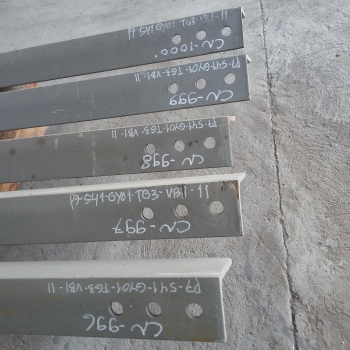 P7-S41-GY01-TG3-VB1-11
CN-1000
P7-S41-GY01-TG3-VB1-11
CN-999
P7-S41-GY01-TG3-VB1-11
CN-998
P7-S41-GY01-TG3-VB1-11
CN-997
P7-S41-GY01-TG3-VB1-11
CN-996